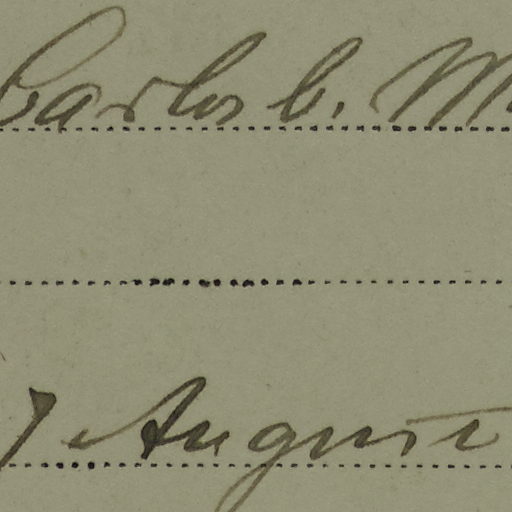 Carlos C. M
7 August